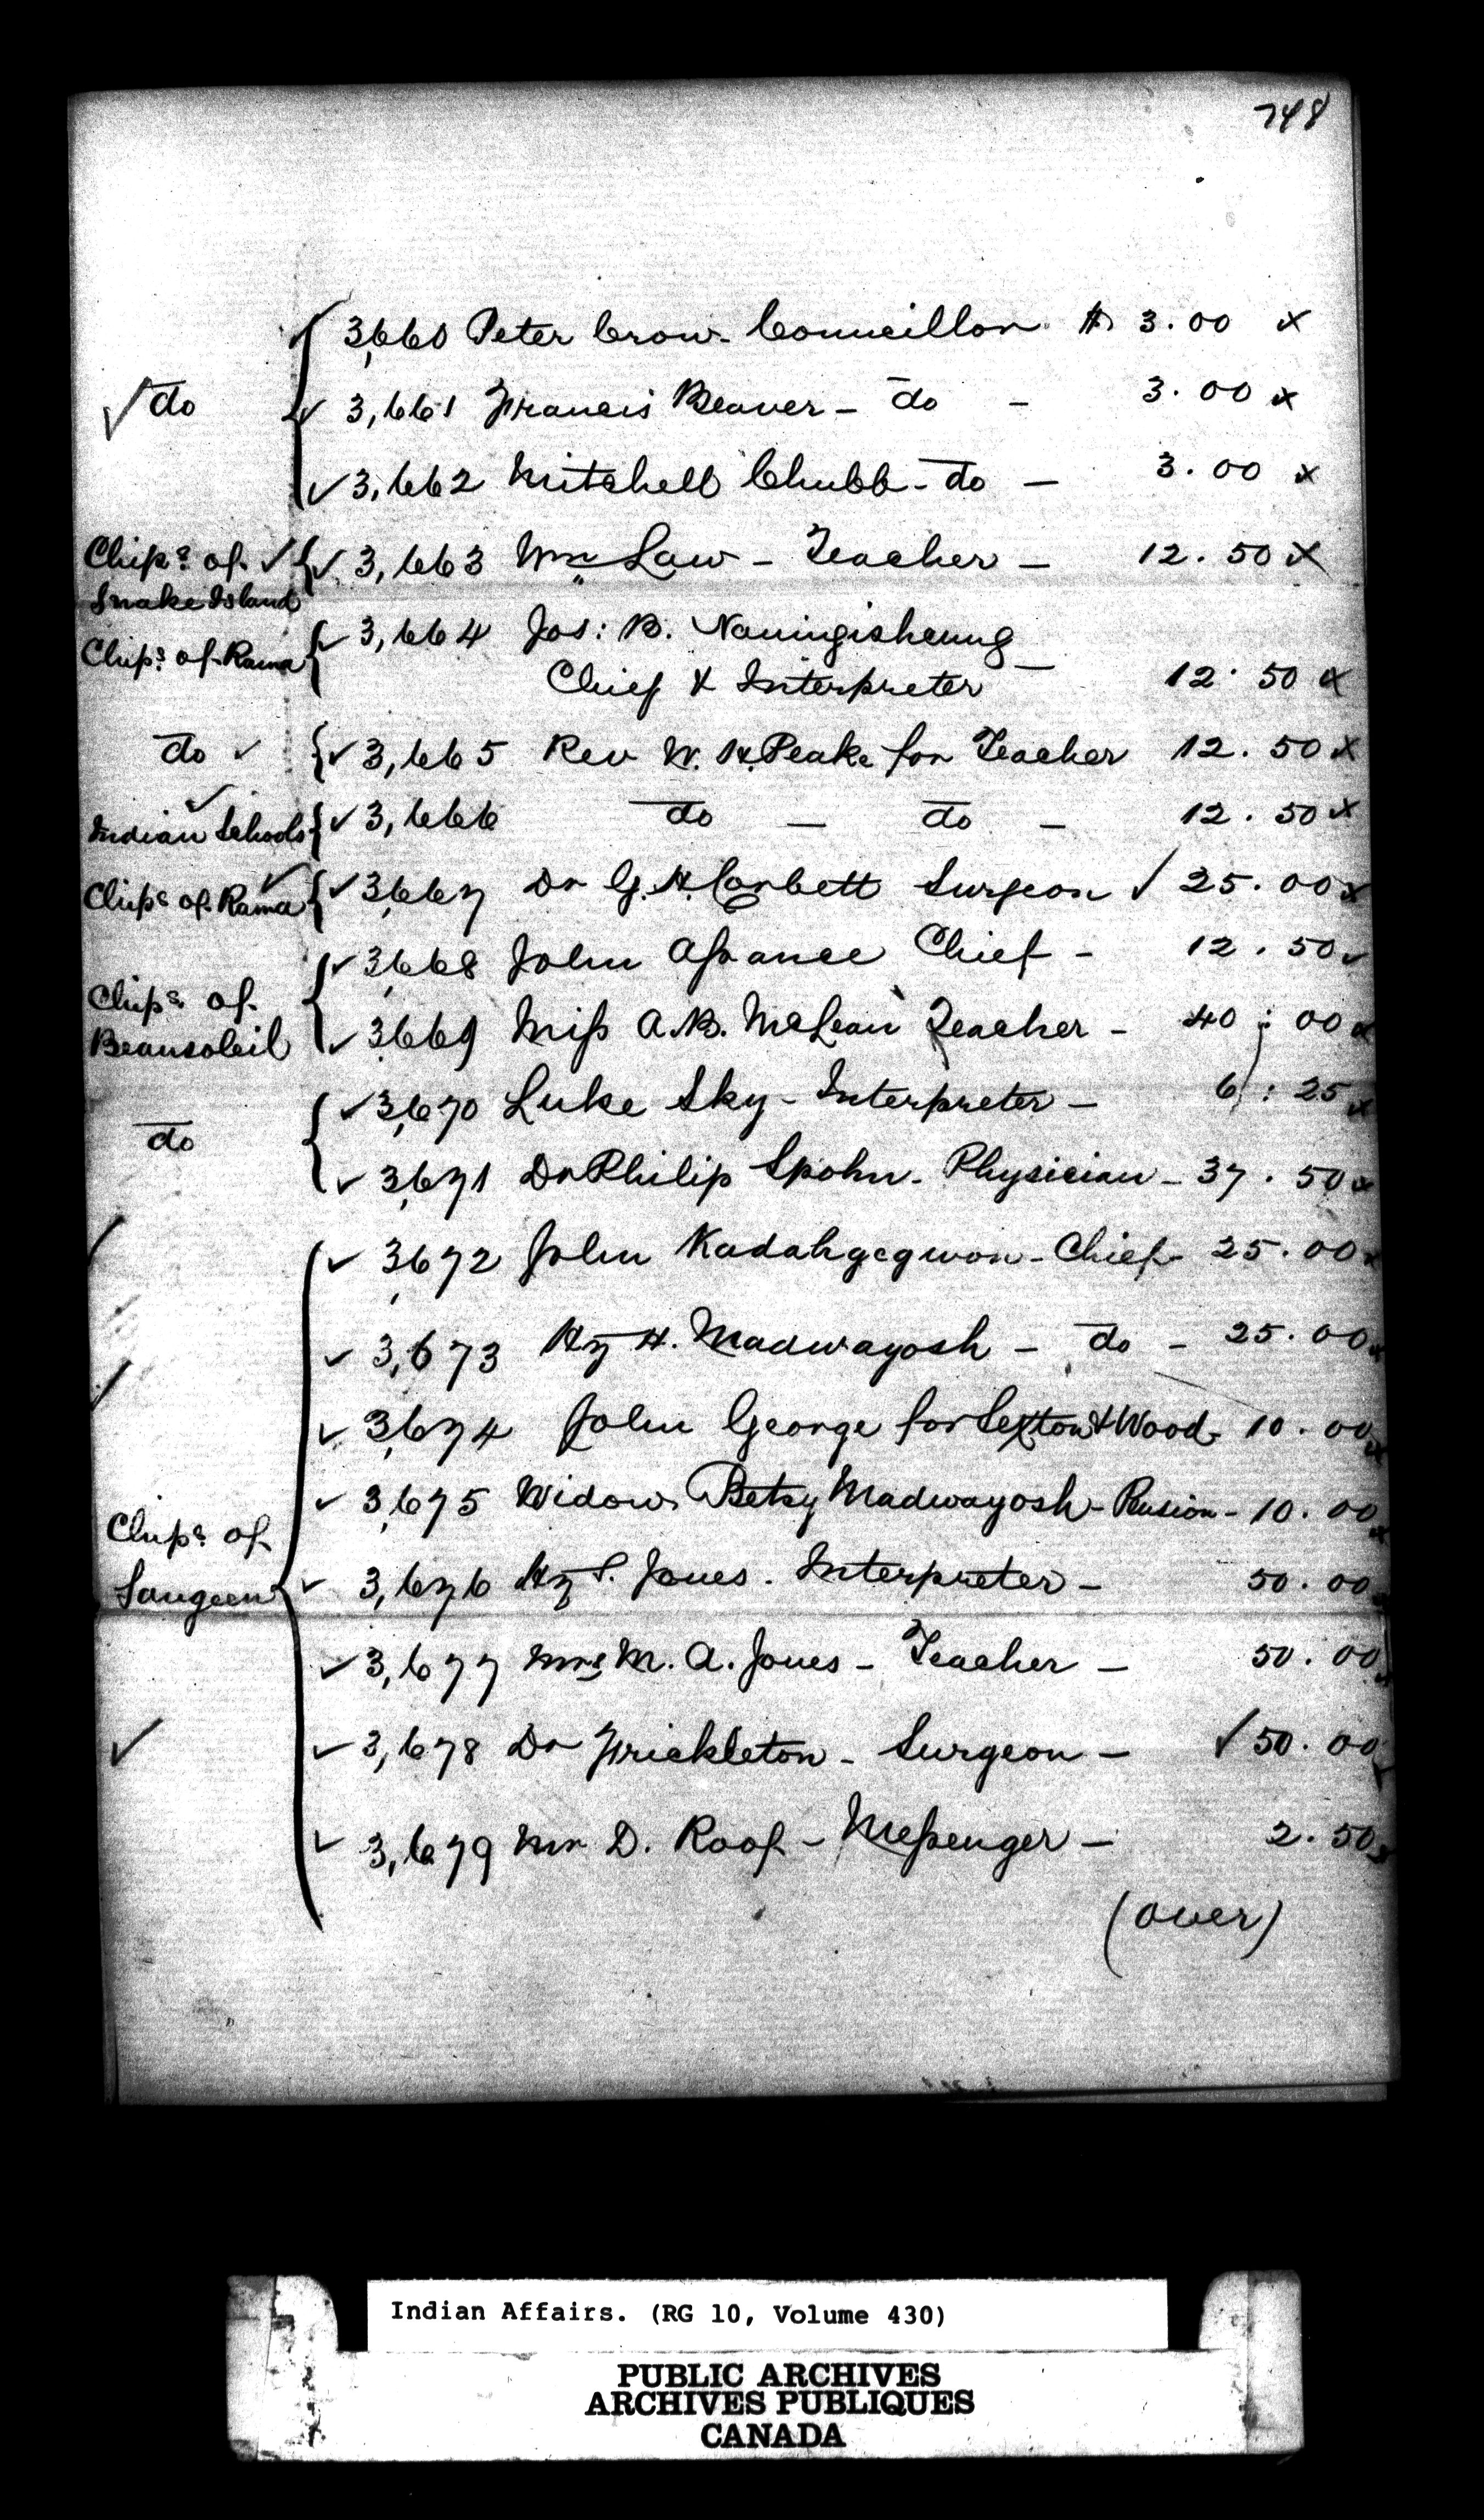 748
✓ 3,660 Peter Crow - Councillor $ 3.00 x
✓ do ✓ 3,661 Francis Beaver - do - 3.00 x
✓ 3,662 Mitchell Chubb - do - 3.00 x
Chips. of ✓ ✓ 3,663 Wm Law - Teacher - 12.50 x
Snake Island
✓ 3,664 Jos: B. Naningishcung
Chips. of Rama Chief & Interpreter - 12.50 x
do ✓ ✓ 3,665 Rev W. H. Peake for Teacher 12.50 x
✓ Indian Schools ✓ 3,666 do - do - 12.50 x
Chips. of Rama ✓ ✓ 3,667 Dr G. H. Corbett Surgeon ✓ 25.00 x
✓ 3,668 John Assance Chief - 12.50
Chips. of
Beausoleil ✓ 3,669 Miss A. B. McLean Teacher - 40:00 x
✓ 3,670 Luke Sky - Interpreter - 6:25 x
do
✓ 3,671 Dr Philip Spohn - Physician - 37.50 x
✓ 3,672 John Kadahgegwon - Chief - 25.00 x
✓ 3,673 Hy H. Madwayosh - do - 25.00 x
✓ 3,674 John George for Sexton & Wood - 10.00 x
✓ 3,675 Widow Betsy Madwayosh - Pension - 10.00 x
Chips. of
Saugeen ✓ 3,676 Hy S. Jones. Interpreter - 50.00 x
✓ 3,677 Mrs M. A. Jones - Teacher - 50.00 x
✓ ✓ 3,678 Dr Frickleton - Surgeon - ✓ 50.00 x
✓ 3,679 Mr D. Roof - Messenger - 2.50 x
(over)
Indian Affairs. (RG 10, Volume 430)
PUBLIC ARCHIVES
ARCHIVES PUBLIQUES
CANADA